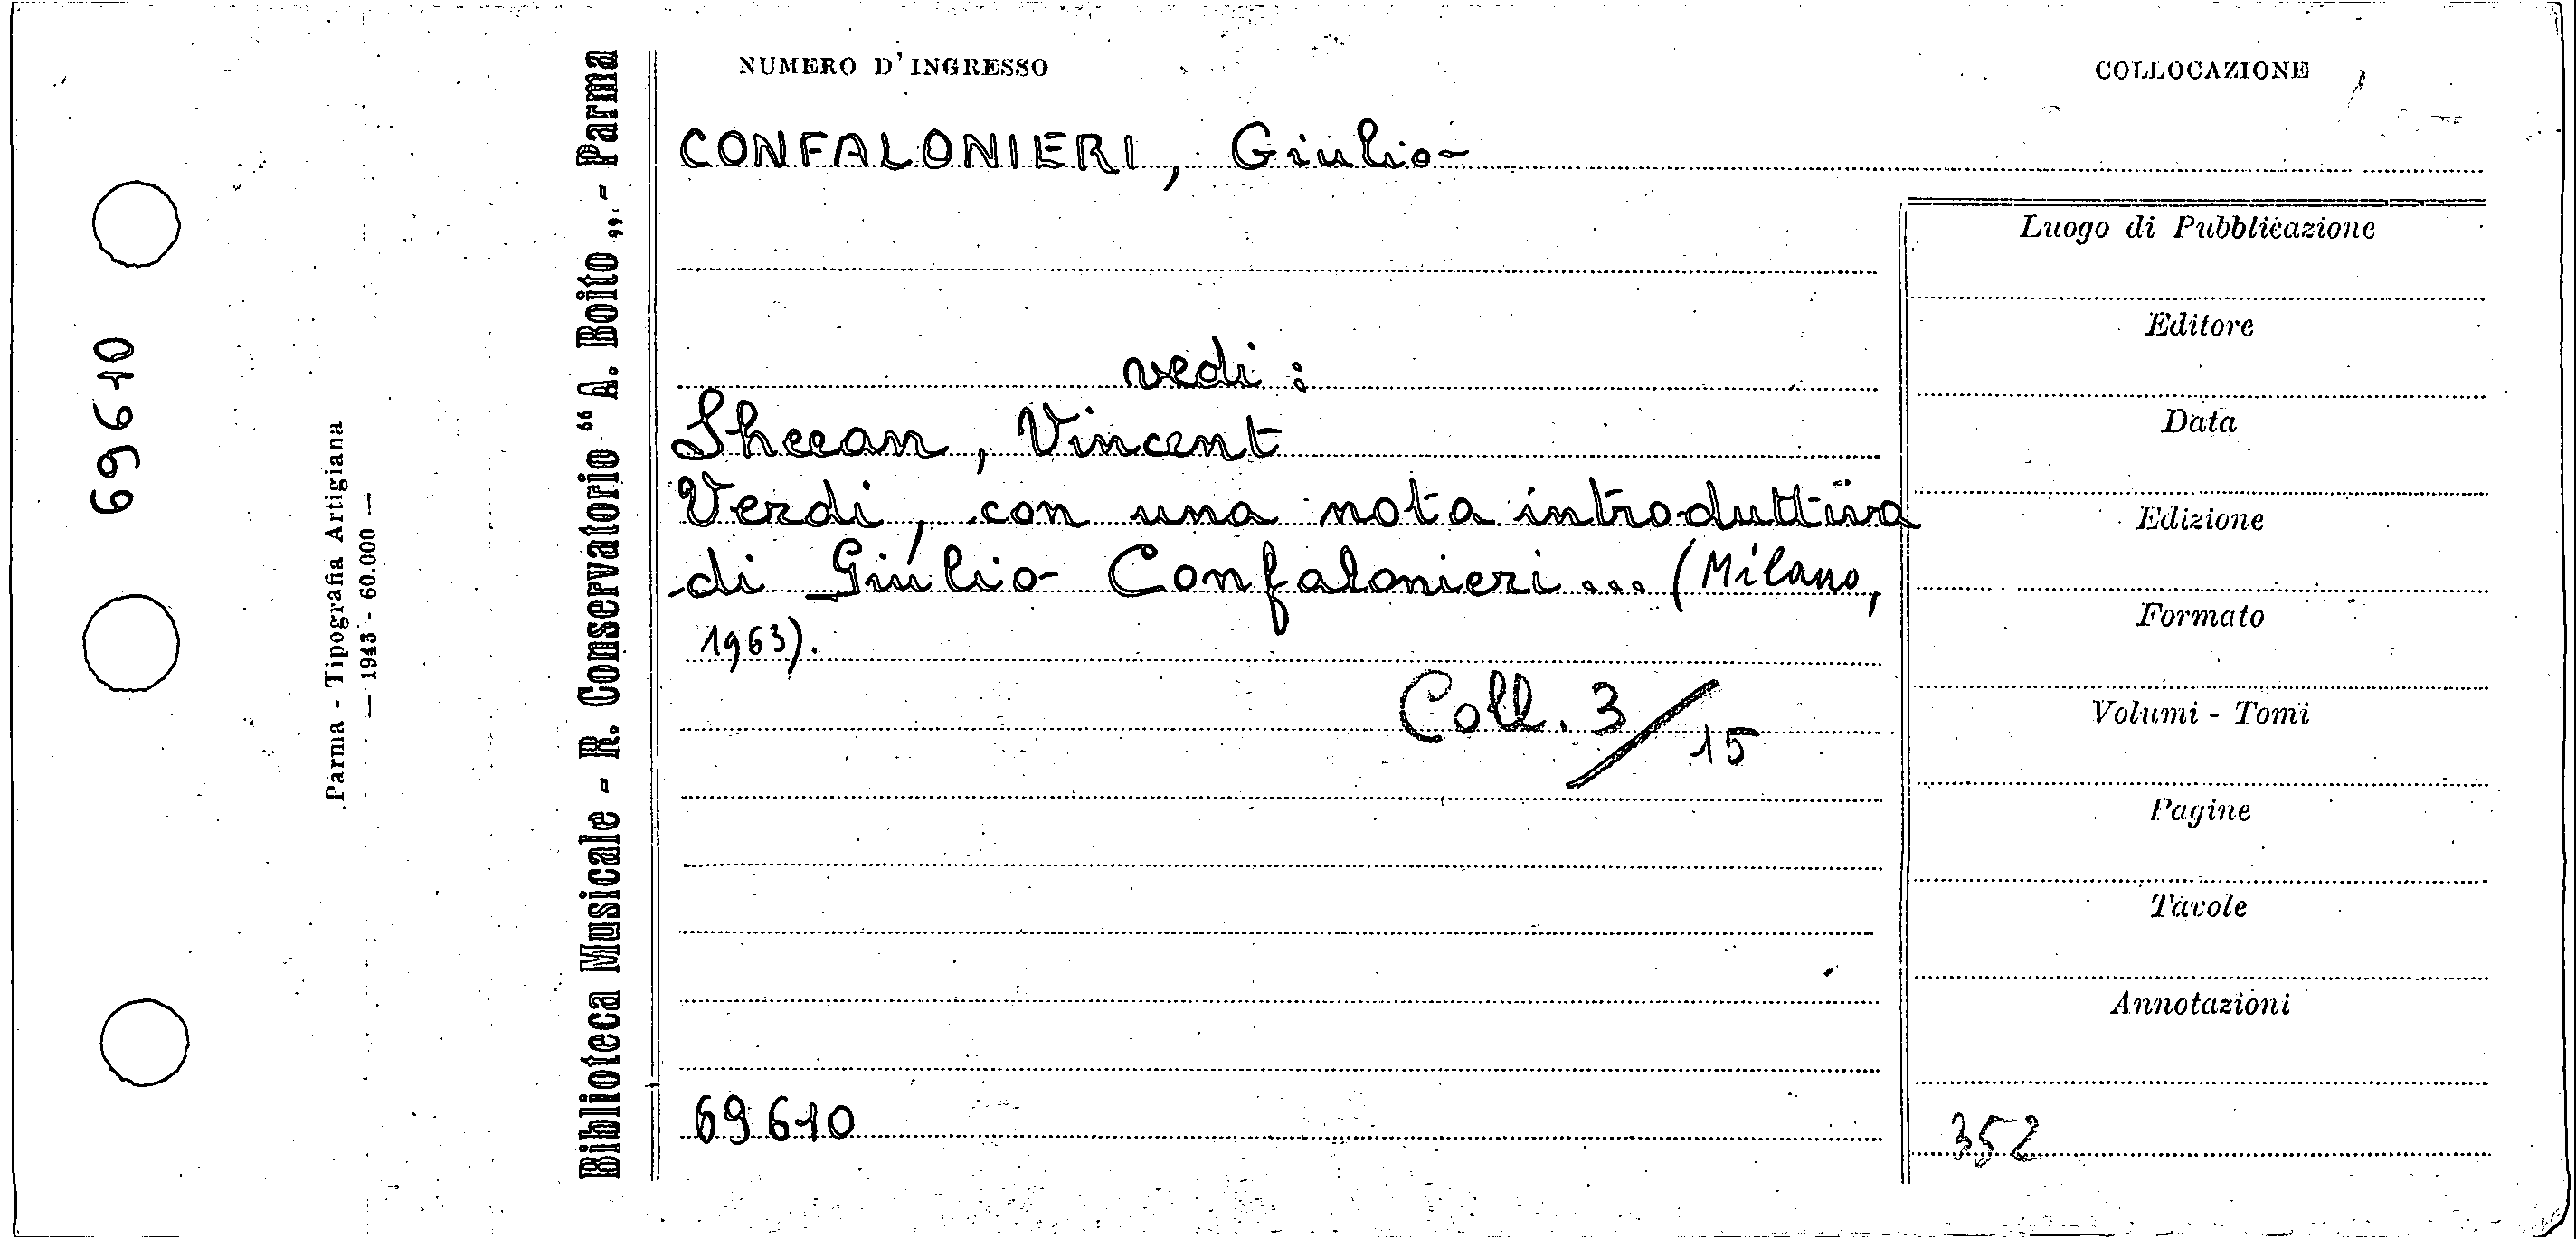 NUMERO D'INGRESSO
COLLOCAZIONE
CONFALONIERI, Giulio
vedi:
Sheean, Vincent
Verdi, con una nota introduttiva
di Giulio Confalonieri... (Milano,
1963).
Coll. 3/15
69610
Luogo di Pubblicazione
Editore
Data
Edizione
Formato
Volumi - Tomi
Pagine
Tavole
Annotazioni
352
Biblioteca Musicale - R. Conservatorio "A. Boito„ - Parma
Parma - Tipografia Artigiana
— 1943 - 60.000 —
69610